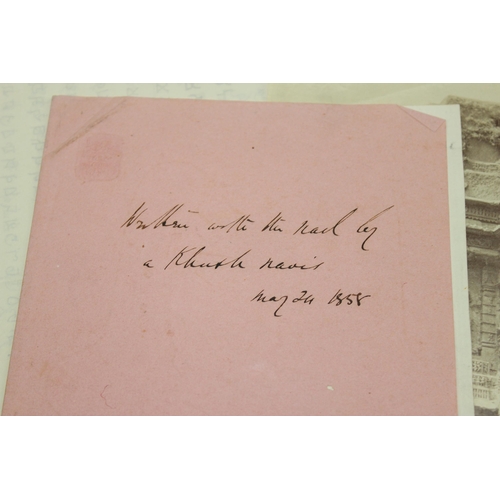 Written with the nail by
a Khush navis
May 24 1858